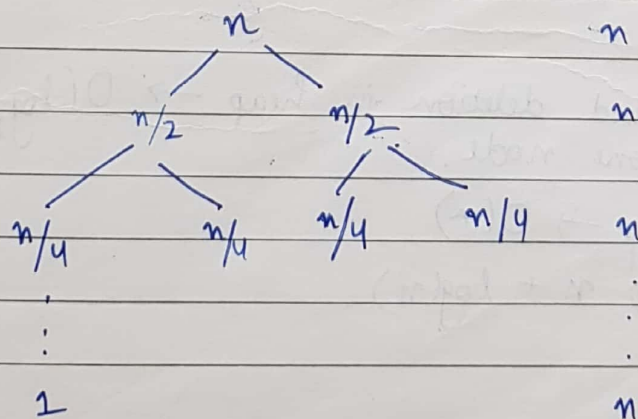 n n
n/2 n/2 n
n/4 n/4 n/4 n/4 n
1 n